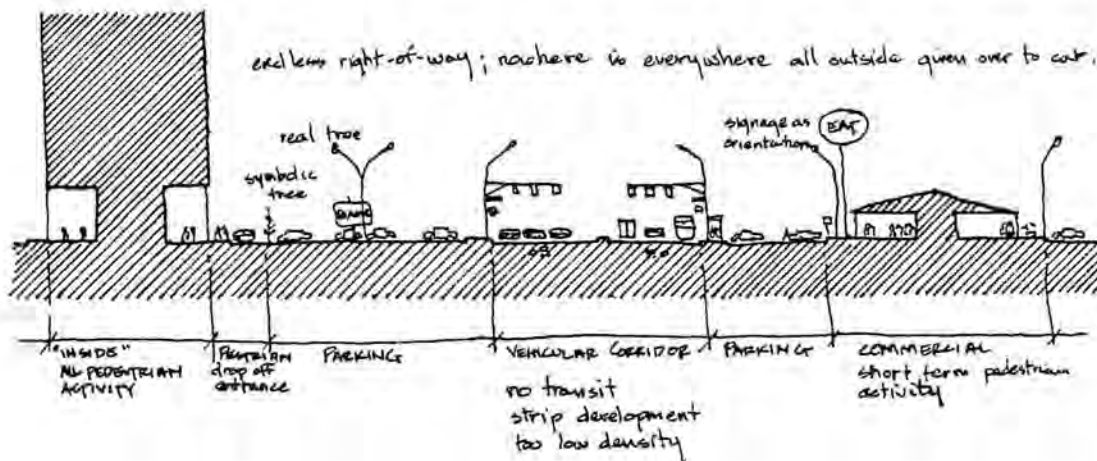 endless right-of-way; nowhere is everywhere all outside given over to car.
real tree
symbolic
tree
signage as
orientation
EAT
"INSIDE"
ALL PEDESTRIAN
ACTIVITY
PESTRIAN
drop off
entrance
PARKING
VEHICULAR CORRIDOR
no transit
strip development
too low density
PARKING
COMMERCIAL
short term pedestrian
activity